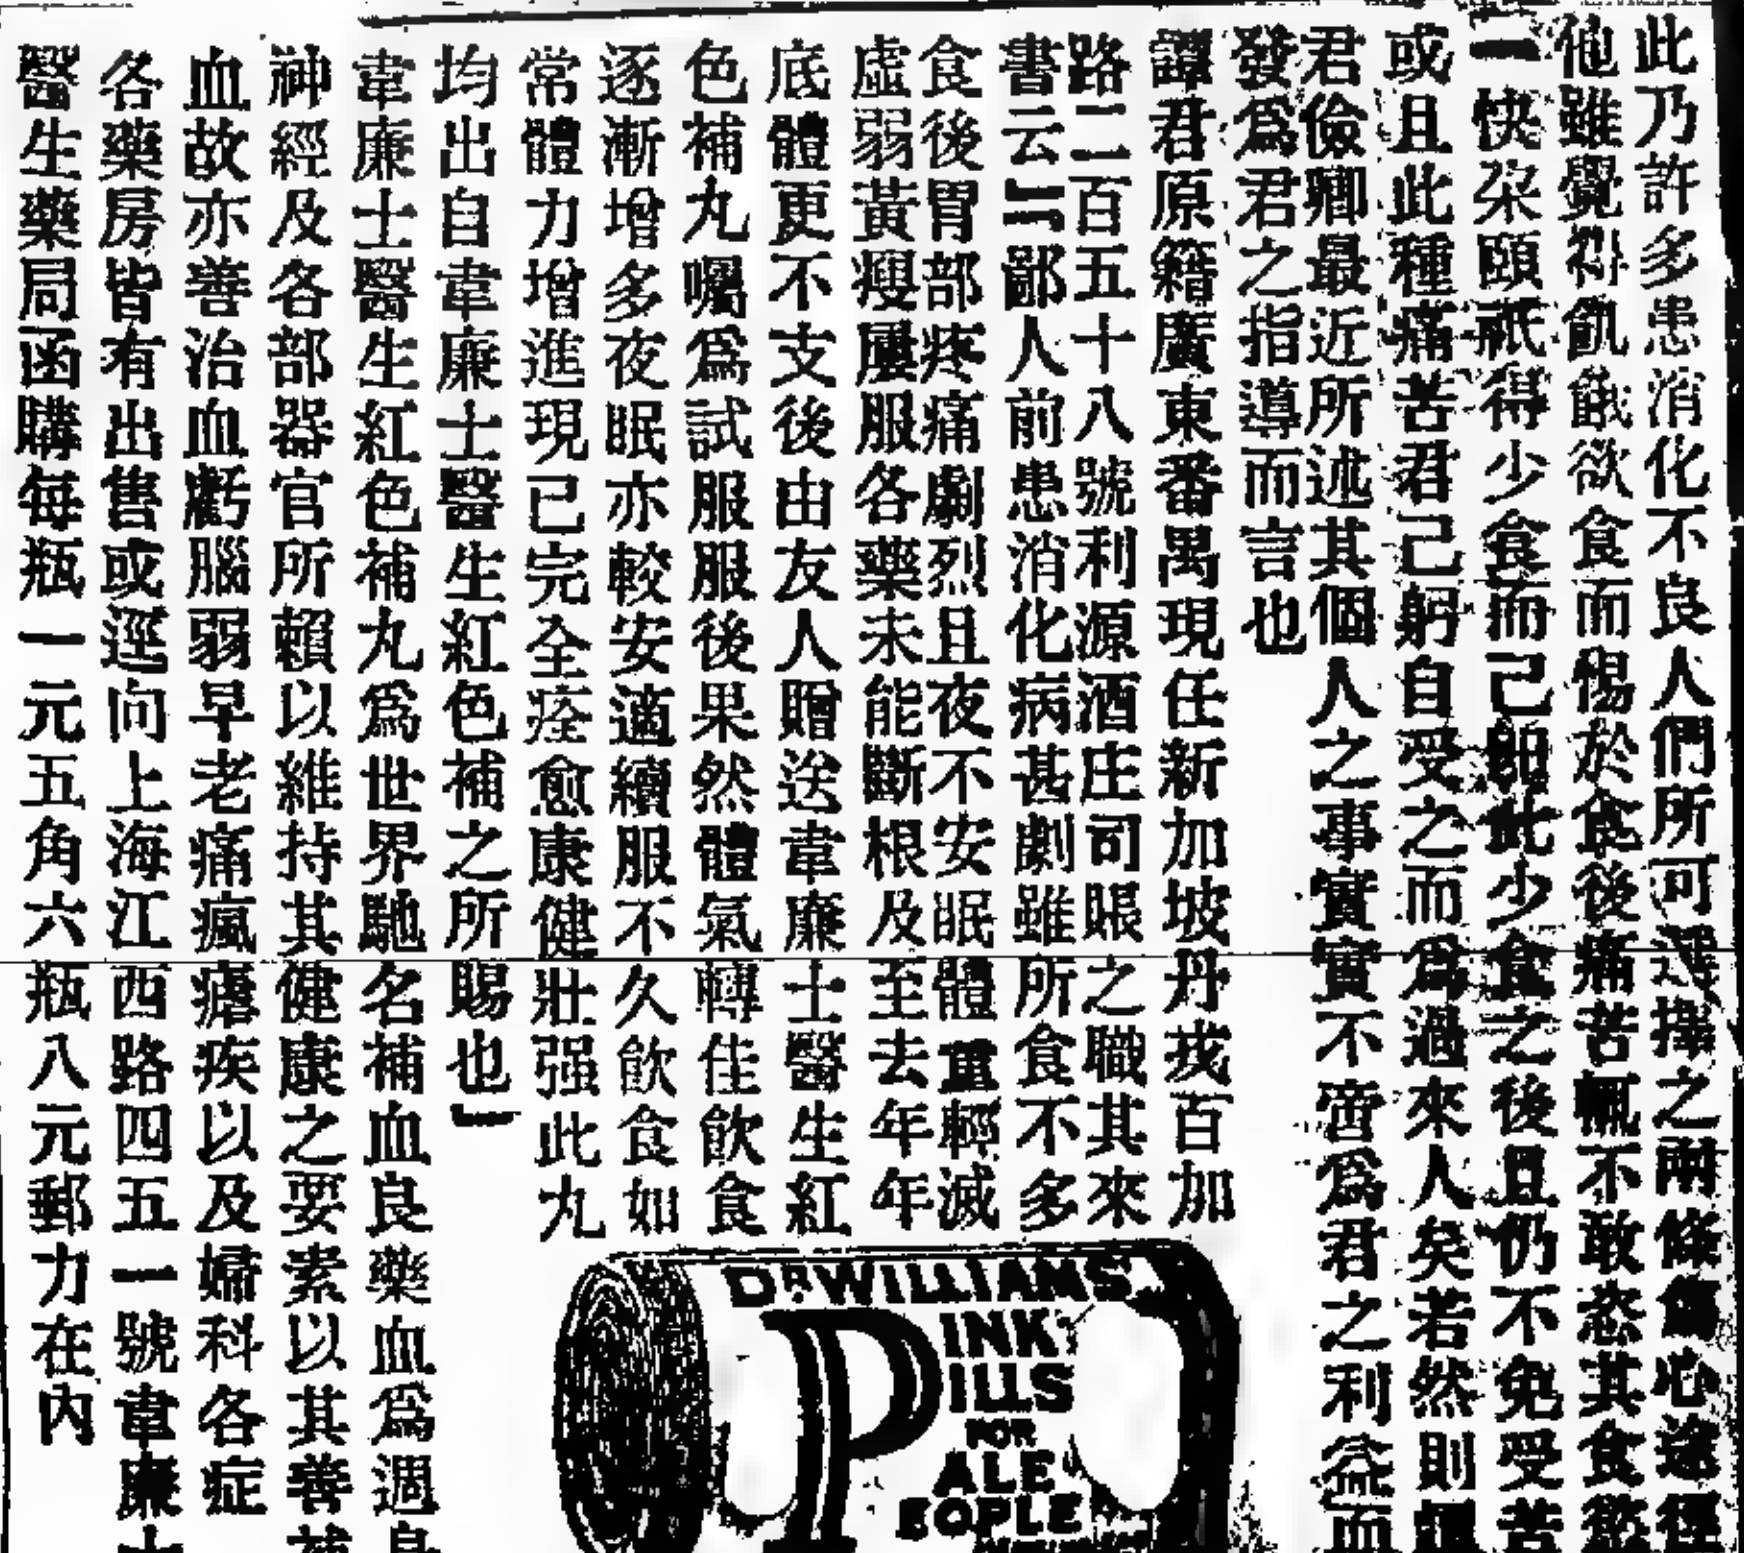 此乃許多患消化不良人們所可選擇之兩條傷心途徑
他雖覺得飢餓欲食而惕於食後痛苦輒不敢恣其食慾
一快朶頤祇得少食而已卽此少食之後且仍不免受苦
或且此種痛苦君己躬自受之而爲過來人矣若然則譚
君儉卿最近所述其個人之事實實不啻爲君之利益而
發爲君之指導而言也
譚君原籍廣東番禺現任新加坡丹戎百加
路二百五十八號利源酒庄司賬之職其來
書云『鄙人前患消化病甚劇雖所食不多
食後胃部疼痛劇烈且夜不安眠體重輕減
虛弱黃瘦屢服各藥未能斷根及至去年年
底體更不支後由友人贈送韋廉士醫生紅
色補丸囑爲試服服後果然體氣轉佳飲食
逐漸增多夜眠亦較安適續服不久飲食如
常體力增進現已完全痊愈康健壯强此丸
均出自韋廉士醫生紅色補之所賜也』
韋廉士醫生紅色補丸爲世界馳名補血良藥血爲週身
神經及各部器官所賴以維持其健康之要素以其善補
血故亦善治血虧腦弱早老痛瘋瘧疾以及婦科各症
各藥房皆有出售或逕向上海江西路四五一號韋廉士
醫生藥局函購每瓶一元五角六瓶八元郵力在內
DR WILLIAMS
PINK
PILLS
FOR
PALE
PEOPLE